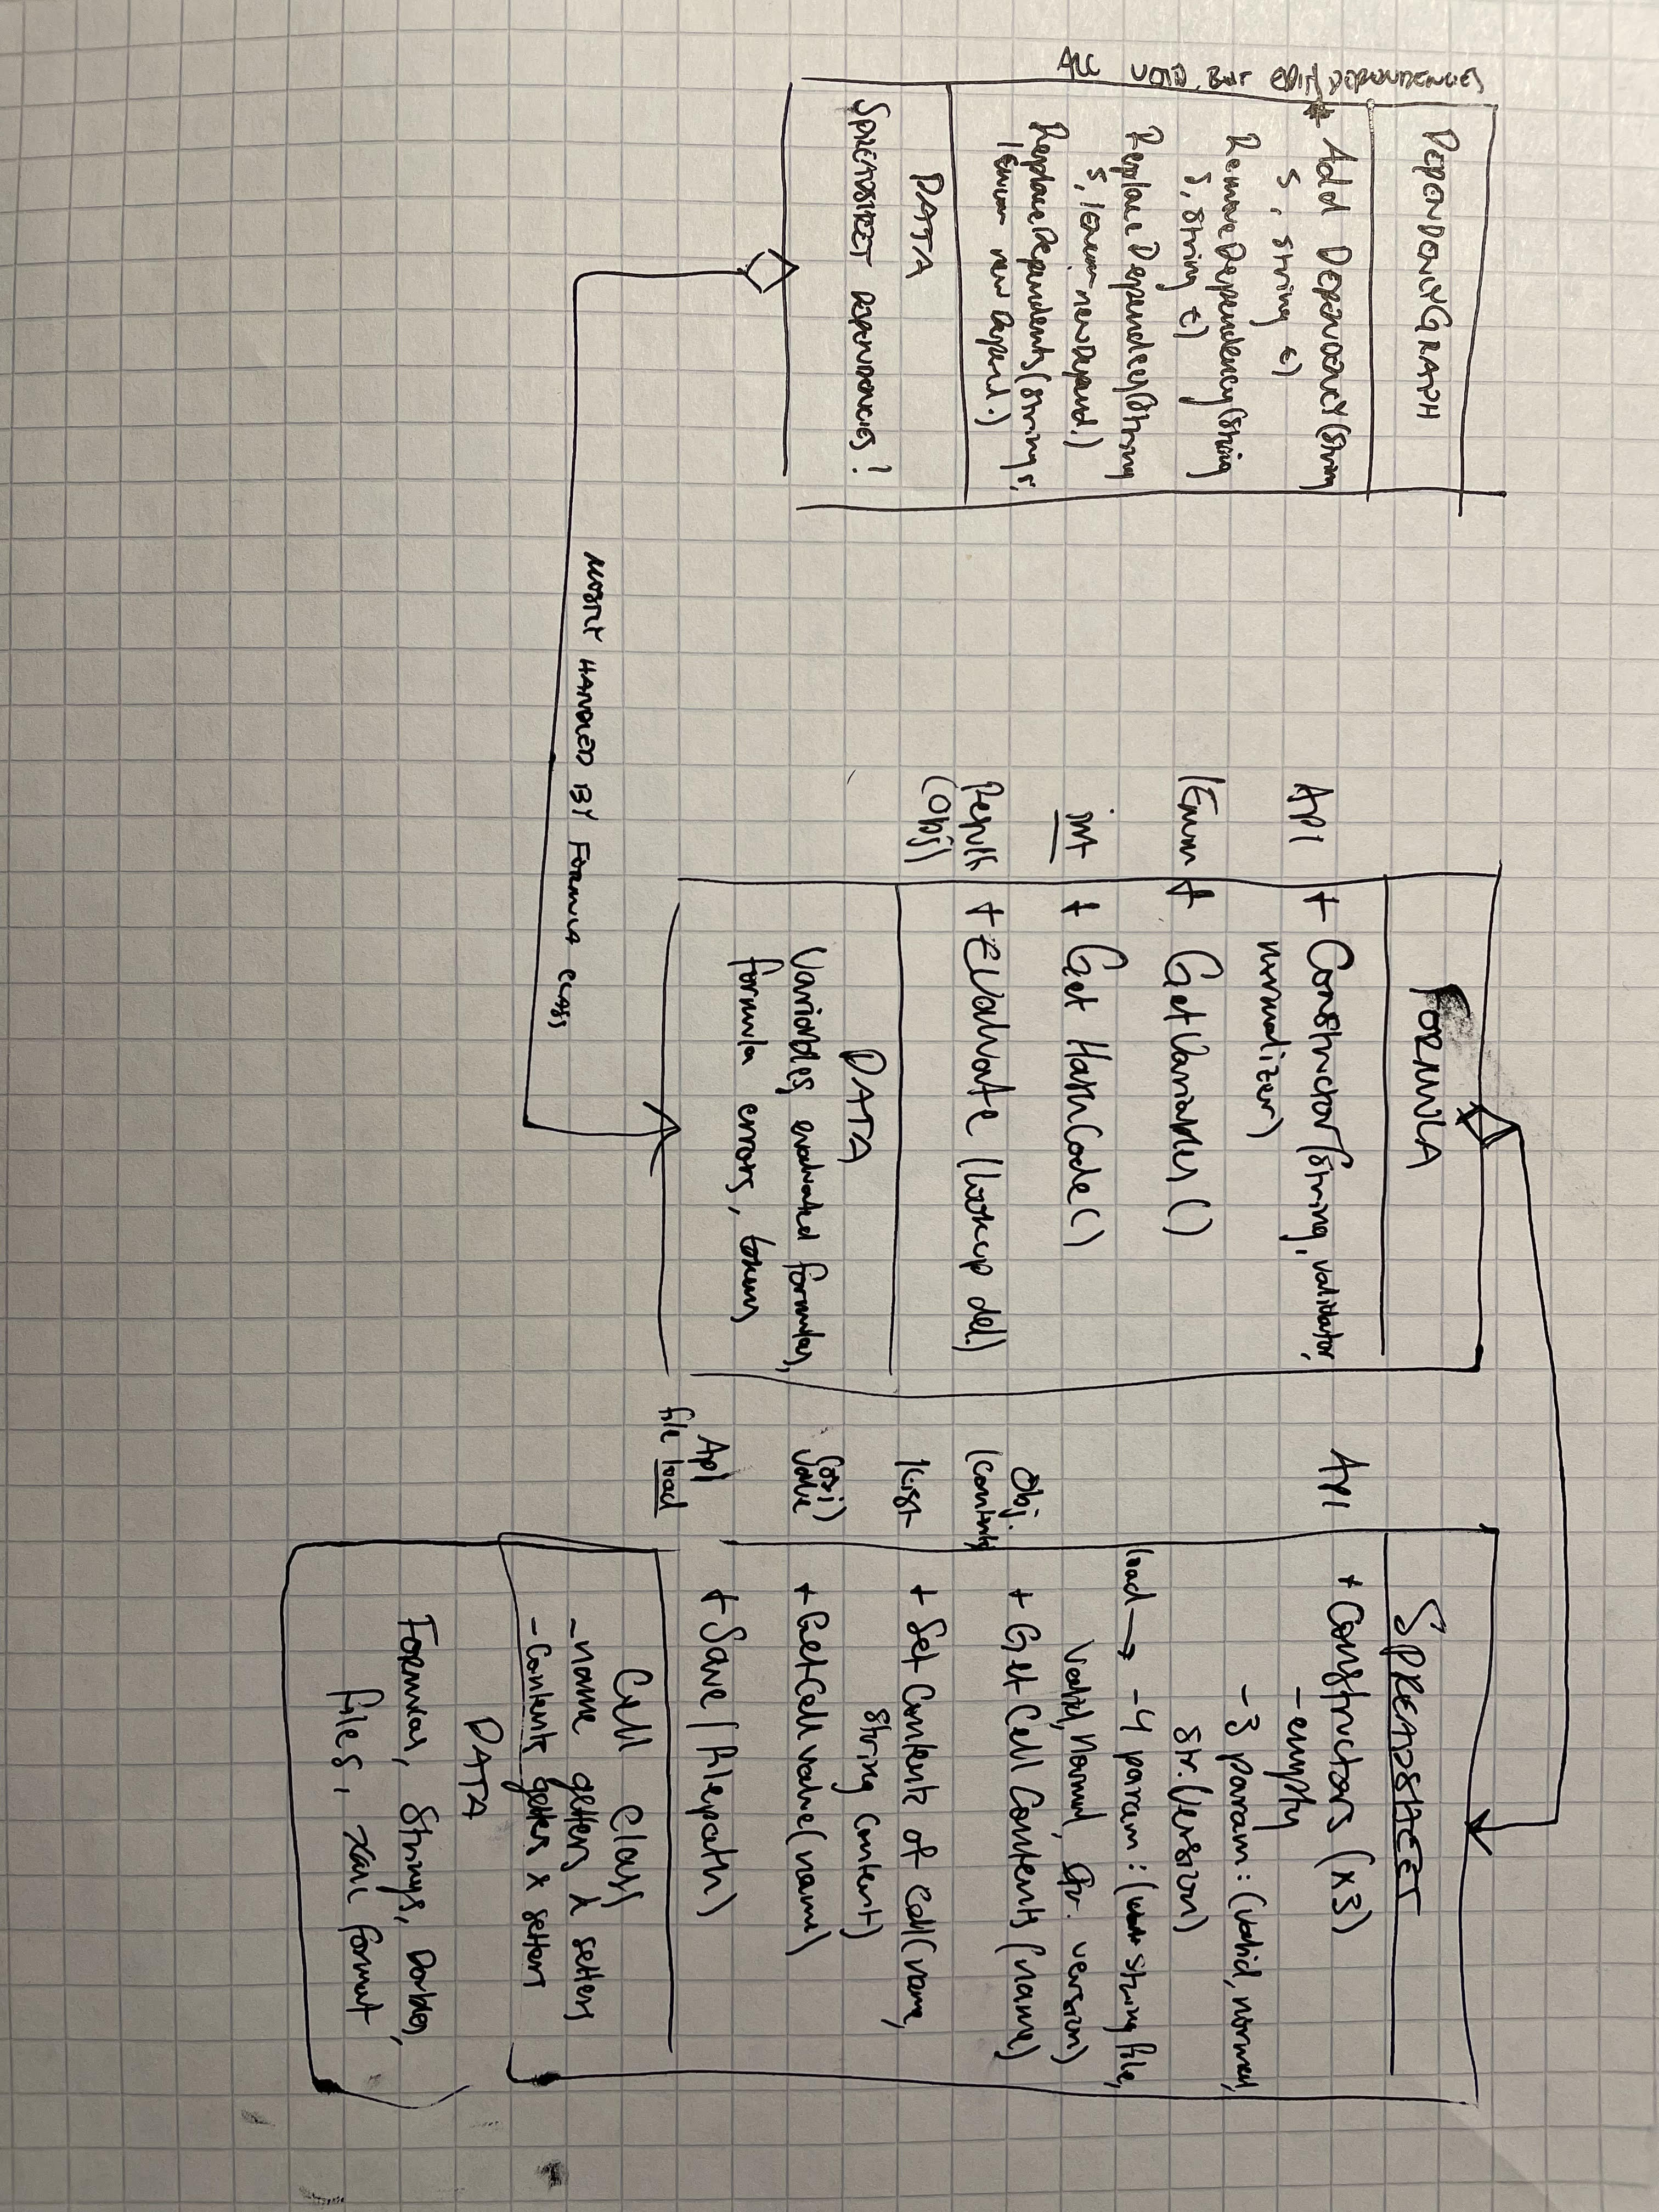 ALL VOID, BUT EDIT DEPENDENCIES
DEPENDENCYGRAPH
+ Add DEPENDENCY(String
s, string t)
RemoveDependency(String
s, string t)
Replace Dependees(String
s, IEnum newDepend.)
ReplaceDependents(String s,
IEnum new Depend.)
DATA
SPREADSHEET DEPENDENCIES!
MOSTLY HANDLED BY FORMULA CLASS
FORMULA
API + Constructor(String, validator,
normalizer)
IEnum + GetVariables()
int + Get HashCode()
Result + Evaluate (lookup del.)
(Obj)
DATA
Variables, evaluated formulas,
formula errors, tokens
SPREADSHEET
API + Constructors (x3)
- empty
- 3 param: (valid, normal,
str. version)
load → - 4 param: (string file,
valid, normal, str. version)
Obj. + Get Cell Contents (name)
(contents)
IList + Set Contents of Cell(name,
string content)
(obj) + GetCellValue(name)
value
API + Save (filepath)
file load
Cell Class
- name getters & setters
- Contents getters & setters
DATA
Formulas, Strings, Doubles,
files, xml format